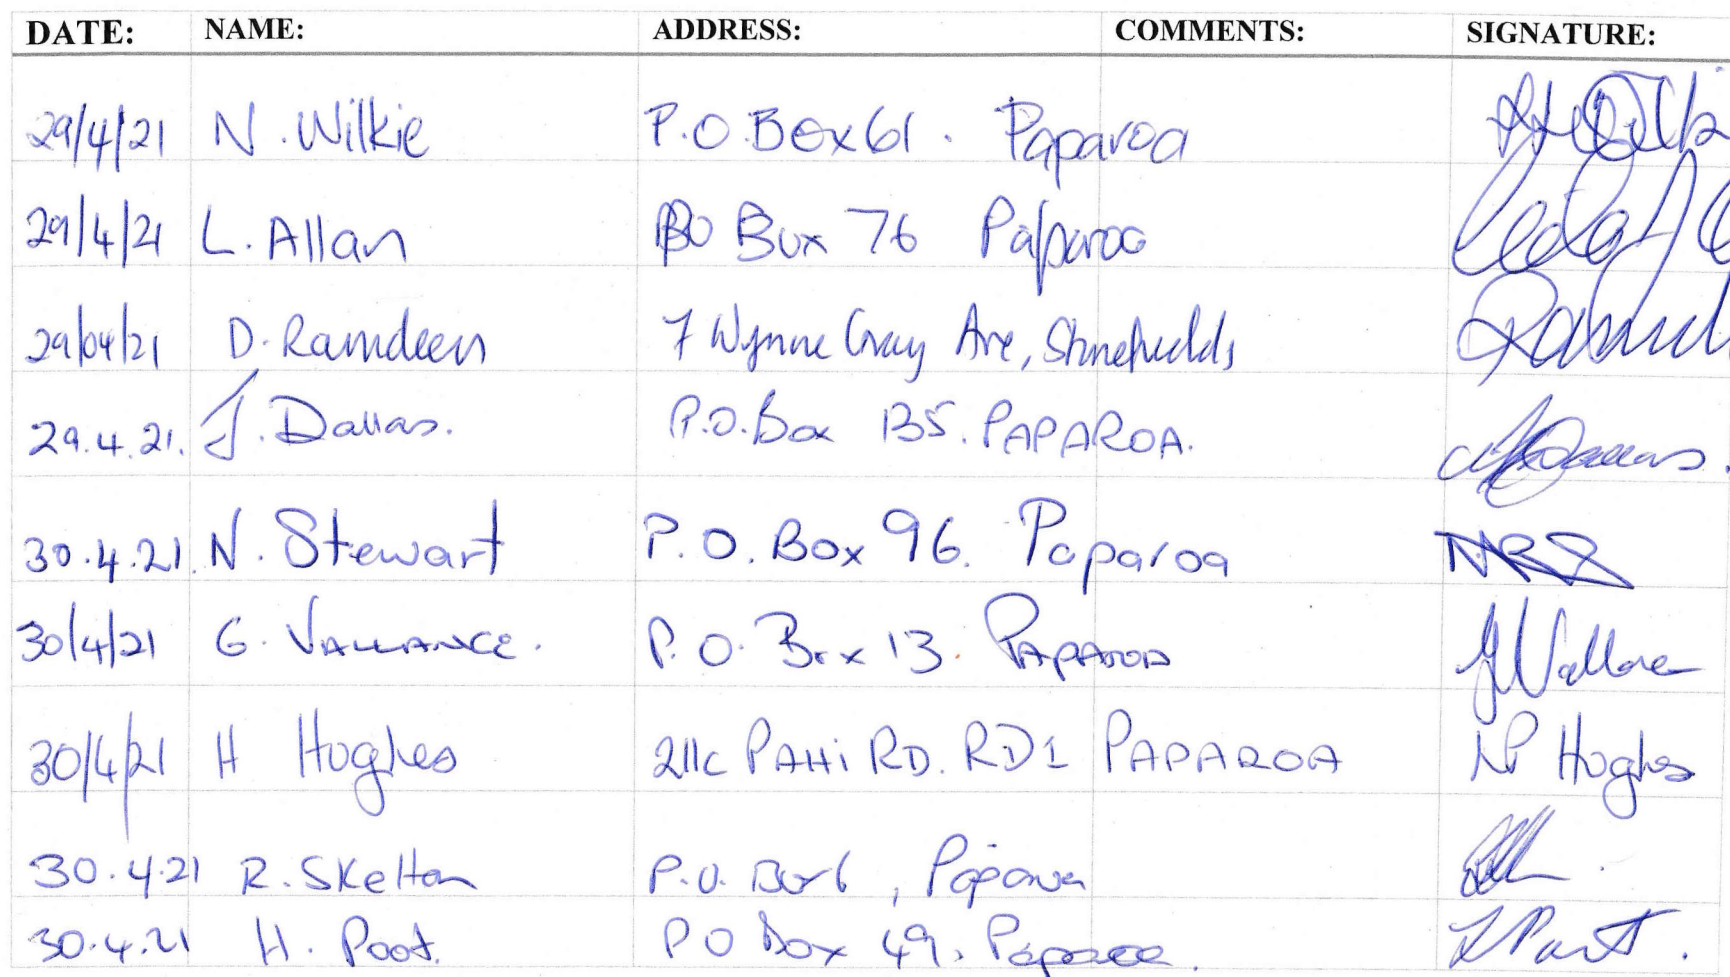 DATE: NAME: ADDRESS: COMMENTS: SIGNATURE:
29/4/21 N. Wilkie P.O. Box 61. Paparoa
29/4/21 L. Allan PO Box 76 Paparoa
29/04/21 D. Ramdeen 7 Wynne Gray Ave, Stonefields
29.4.21. J. Dallas. P.O. Box 135. PAPAROA.
30.4.21. N. Stewart P.O. Box 96. Paparoa NRS
30/4/21 G. VALLANCE. P.O. Box 13. PAPAROA
30/4/21 H Hughes 211c PAHI RD. RD1 PAPAROA Hughes
30.4.21 R. Skelton P.O. Box 6, Paparoa
30.4.21 H. Poot. PO Box 49. Paparoa.